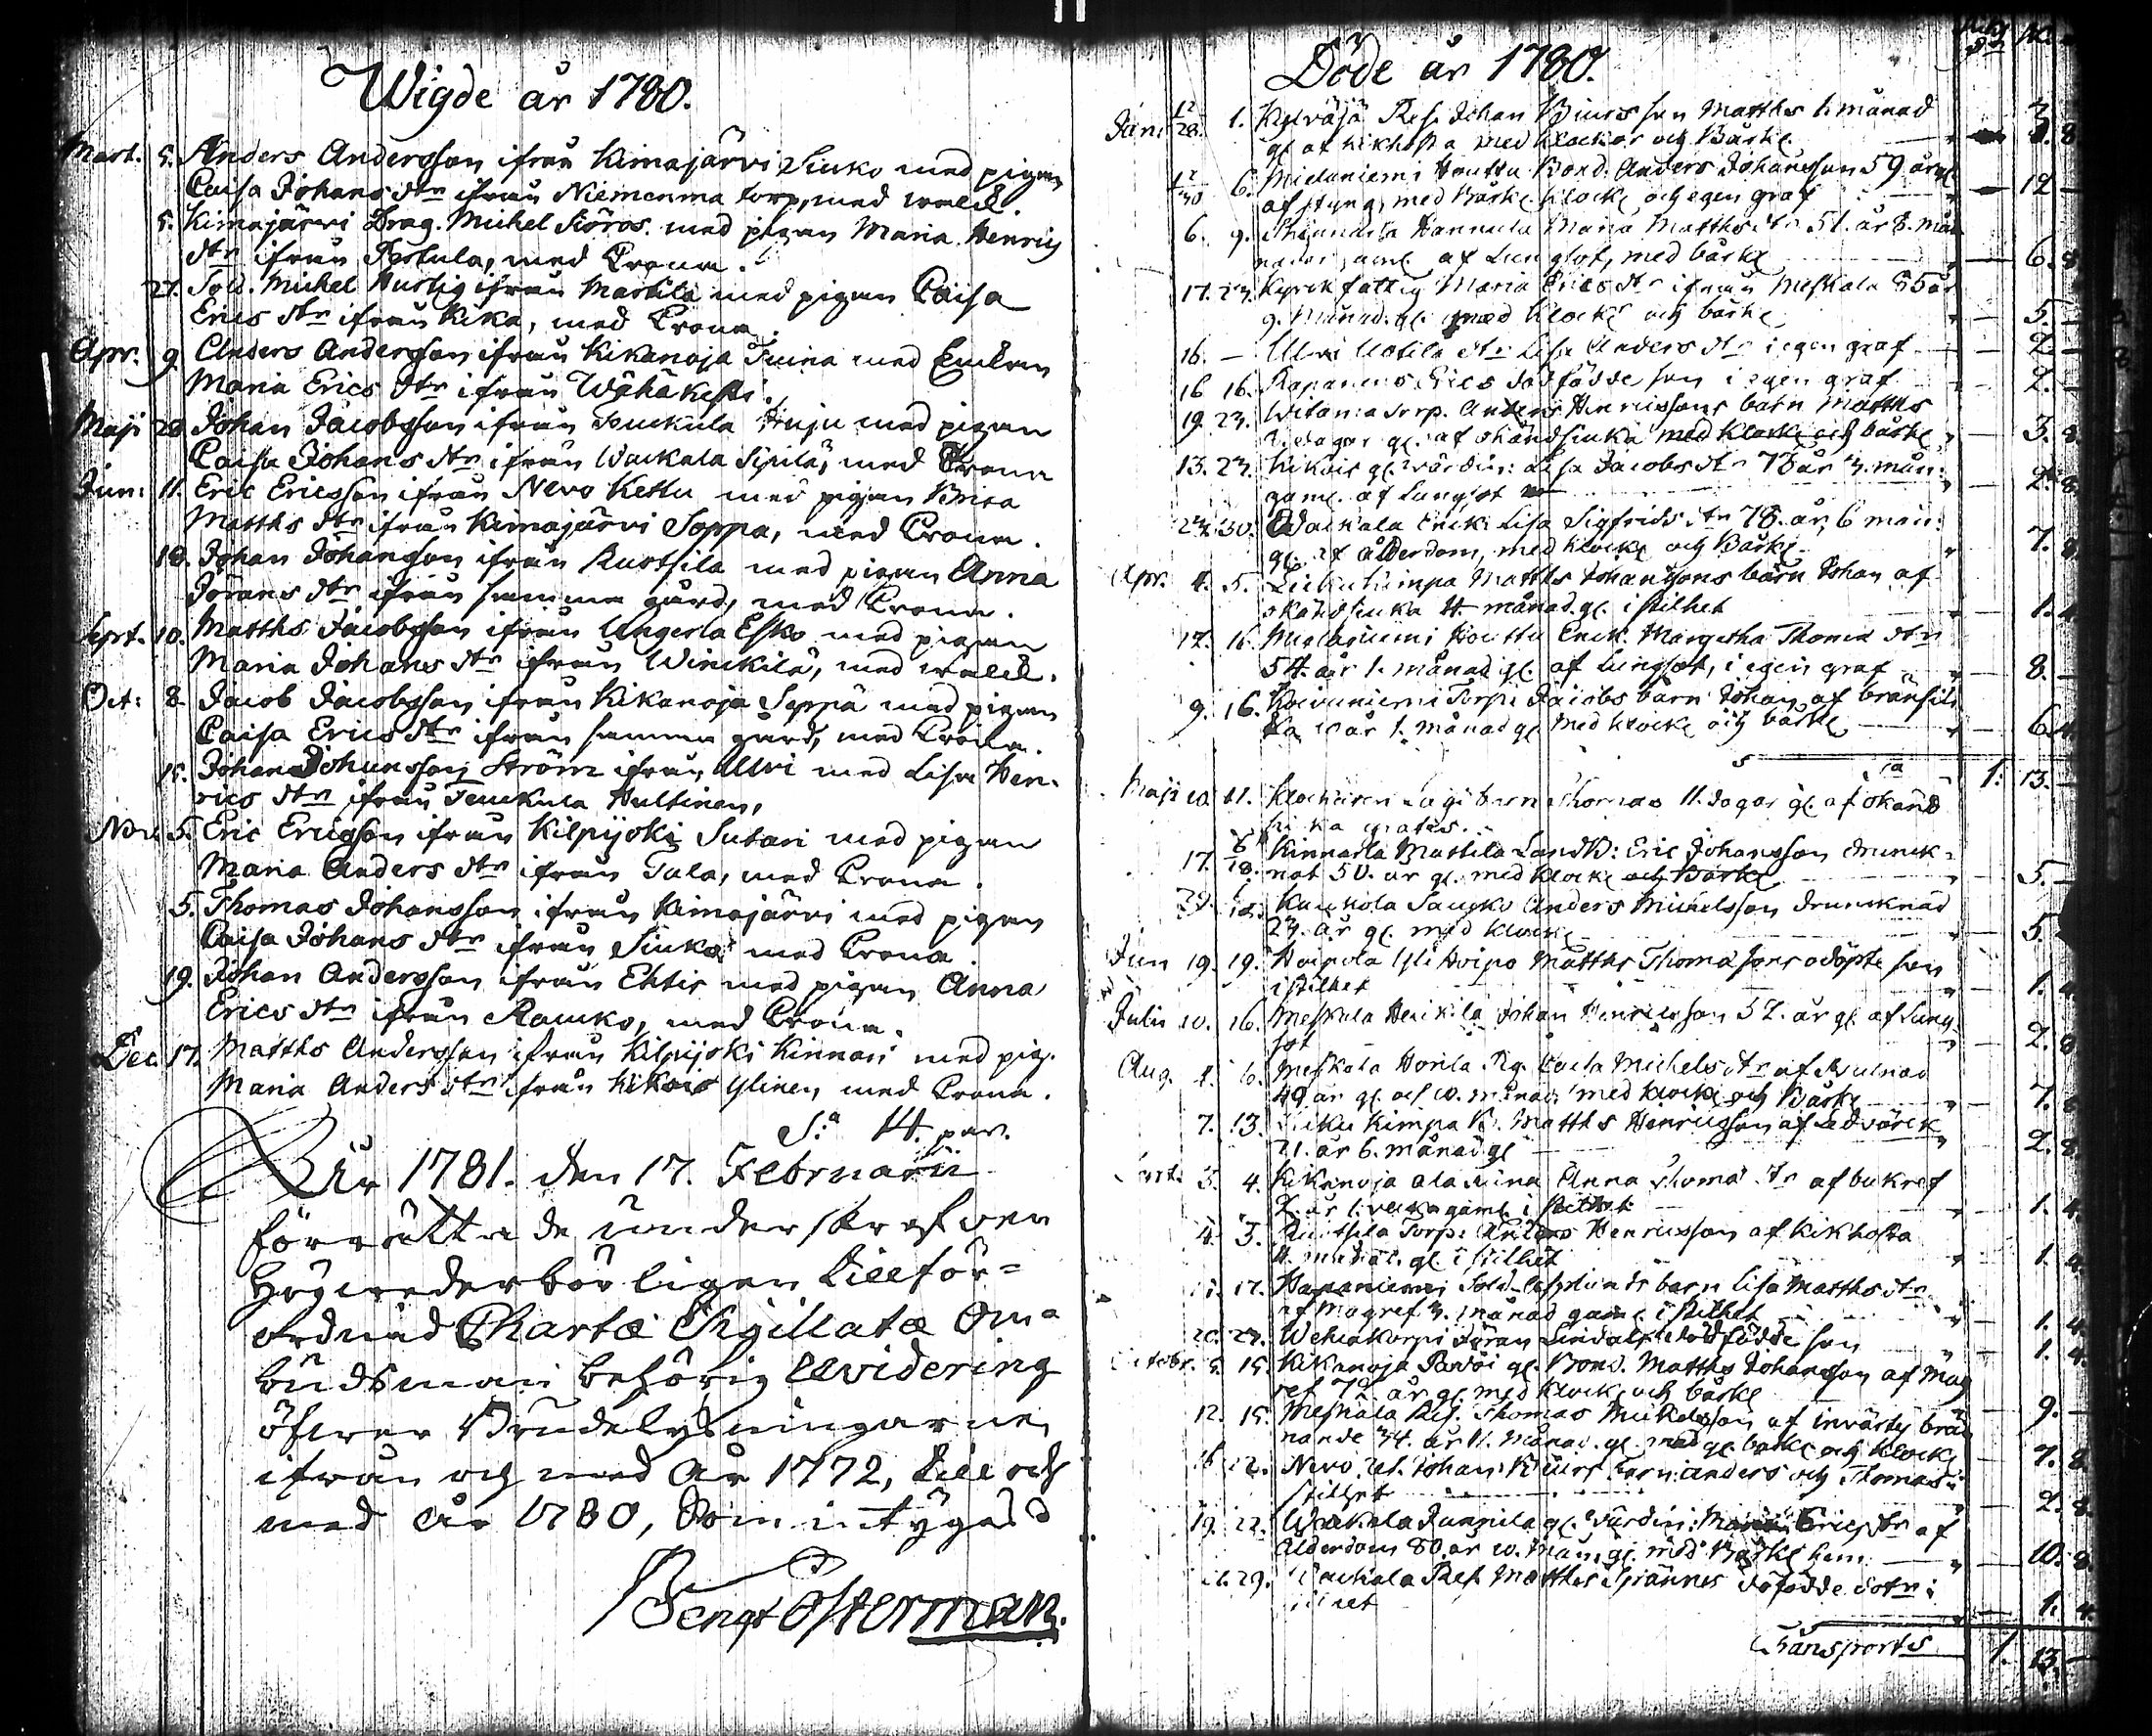 Wigde år 1780.
Mart. 5. Anders Andersson ifrån Kimajärvi Siuko med pigan
Caisa Johans dtr ifrån Niemenma torp, med
5. Kimajärvi Drag. Michel med pigan Maria Henrics
dtr ifrån Tertula, med Crona.
27. Sold. Michel Hurtig ifrån Martila med pigan Caisa
Erics dtr ifrån Kika, med Crona.
Apr. 9. Anders Andersson ifrån Kikanoja med Enkan
Maria Erics dtr ifrån Wähäkesti.
Maji 28 Johan Jacobsson ifrån Teuckula Juju med pigan
Caisa Johans dtr ifrån Wackala Sipilä, med Crona
Jun: 11. Eric Ericsson ifrån Nevo Kettu med pigan Brita
Matths dtr ifrån Kimajärvi Soppa, med Crona.
18. Johan Johansson ifrån Ruotsila med pigan Anna
Jörans dtr ifrån samma gård, med Crona.
Sept. 10. Matths Jacobsson ifrån Ungerla Esko med pigan
Maria Johans dtr ifrån Winckilä, med
Oct: 8 Jacob Jacobsson ifrån Kikanoja Seppä med pigan
Caisa Erics dtr ifrån samma gård, med Crona.
15. Johan Johansson Ström ifrån Ullvi med Lisa Hen-
rics dtr ifrån Teuckula Hultinen,
Nov. 5. Eric Ericsson ifrån Kilpijoki Sutari med pigan
Maria Anders dtr ifrån Tala, med Crona.
5. Thomas Johansson ifrån Kimajärvi med pigan
Caisa Johans dtr ifrån Siuko med Crona.
19. Johan Andersson ifrån Ehtis med pigan Anna
Erics dtr ifrån Ramko, med Crona.
Dec. 17. Matths Andersson ifrån Kilpijoki Kinnari med pig.
Maria Anders dtr ifrån Kikois Ylinen, med Crona.
S:a 14. par.
År 1781. den 17. Februarii
förrättade underskrefven
högvederbörligen tillför-
ordnad Chartæ Sigillatæ Om-
budsman behörig Revidering
öfver Brudelysningarne,
ifrån och med År 1772, till och
med År 1780, Som intygas
Bengt Österman.
Döde år 1780.
Jan: 12/28. 1. Res. Johan son Matths 1. månad
gl. af kikhosta med klockor och Bårkl. 8
12/30 6. Mielaniemi Houttu Bond. Anders Johansson 59 år gl.
af styng, med Bårkl. klock och egen graf 12
6. 9. Hannula Maria Matths dtr 51. år 8. må-
nader gaml. af Lungsot, med bårkl 6. 8
17. 23. Kyrckfattig Maria Erics dtr ifrån Meskala 85 år
9. Månad. gl. med klock och bårkl 5.
16. — Ullvi Uotila dtr Lisa Anders dtr i egen graf 2.
16 16. Rapanens Erics dödfödde son i egen graf 2.
19. 23. Witania torp. Anders Henricssons barn Matths
dagar gl. af okändsiuka med klock och bårkl 3. 8
13. 23. Kikois gl. värdin: Lisa Jacobs dtr 73 år 3. mån:
gaml. af Lungsot 2. 8
24. 30. Wackala Enck. Lisa Sigfrids dtr 78. år, 6 mån:
gl. af ålderdom, med klock och Bårkl 7. 8
Apr. 4. 5. Kimpa Matths Johanssons barn Johan af
okändsiuka 4. månad. gl. i stilhet 1. 4
12. 16. Mielaniemi Houttu Enck. Margetha Thomæ dtr
54. år 1. månad gl. af Lungsot, i egen graf 8.
9. 16. Koivuniemi Torp: Jacobs barn Johan af brännsiu
ka år 1. månad gl. Med klock och bårkl 6. 4
S:a 1: 13. —
Maji 10 11. barn Thomas 11. dagar gl. af okänd
siuka gratis.
17. 6/18. Kinnarla Mattila LandB: Eric Johansson drunck-
nat 50. år gl. med klock och Bårkl 5. —
18. Kaukola Saucko Anders Michelsson druncknad
23. år gl. med klock 5.
Jun 19. 19. Hoipola Yli Hoipo Matths Thomæ sons odöpte son
i stilhet 1. 4
Julii 10. 16. Meskala Heickilä Johan Henricsson 52. år gl. af Lung-
sot 2. 8
Aug. 4. 6. Meskala Honla Pig. Michels dtr af
49 år gl. och 10. månad med klock och Bårkl 7. 8
7. 13. Kimpa Matths Henricsson af Ledvärck
21. år 6. månad gl 2. 8
3. 4. Kikanoja Ala Anna Thomæ dtr af bukref
2. år 1. vecka gaml. i stilhet 1. 4
4. 3. Ruotsila Torp: Anders Henricsson af Kikhosta
4. månad. gl. i stilhet 1. 4
17. Haganiemi Sold. barn Lisa Matths dtr
af magref 3. månad gaml. i stilhet 1. 4
20. 24. Wehiakorpi Jöran Lindals dödfödde son 1. 4
Octobr. 8. 15. Kikanoja gl. Bond. Matths Johansson af Mag
ref 72. år gl. med klock och bårkl 9. —
12. 15. Meskala Res. Thomas Michelsson af invärtes brän
nande 34. år 11. månad. gl. med gl. bårkl och klock 7. 8
16 22. Nevo Res. Johan barn: Anders och Thomas i
stilhet 2. 8
19. 22. Wackala Junnila gl. Värdin: Maria Erics dtr af
Ålderdom 80. år 10. mån. gl. med Bårkl 10. 8
29. Wackala Res. Matths dödfödde dotr i
stilhet 1. 4
Transports 1. 13. —